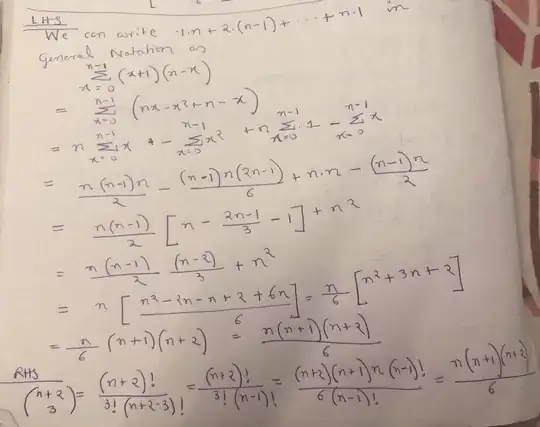 LHS
We can write 1·n + 2·(n-1) + ··· + n·1 in
General Notation as
\sum_{x=0}^{n-1} (x+1)(n-x)
= \sum_{x=0}^{n-1} (nx - x^2 + n - x)
= n \sum_{x=0}^{n-1} x + - \sum_{x=0}^{n-1} x^2 + n \sum_{x=0}^{n-1} 1 - \sum_{x=0}^{n-1} x
= \frac{n(n-1)n}{2} - \frac{(n-1)n(2n-1)}{6} + n·n - \frac{(n-1)n}{2}
= \frac{n(n-1)}{2} [n - \frac{2n-1}{3} - 1] + n^2
= \frac{n(n-1)}{2} \frac{(n-2)}{3} + n^2
= n [\frac{n^2 - 2n - n + 2 + 6n}{6}] = \frac{n}{6} [n^2 + 3n + 2]
= \frac{n}{6} (n+1)(n+2) = \frac{n(n+1)(n+2)}{6}
RHS
\binom{n+2}{3} = \frac{(n+2)!}{3!(n+2-3)!} = \frac{(n+2)!}{3!(n-1)!} = \frac{(n+2)(n+1)n(n-1)!}{6(n-1)!} = \frac{n(n+1)(n+2)}{6}